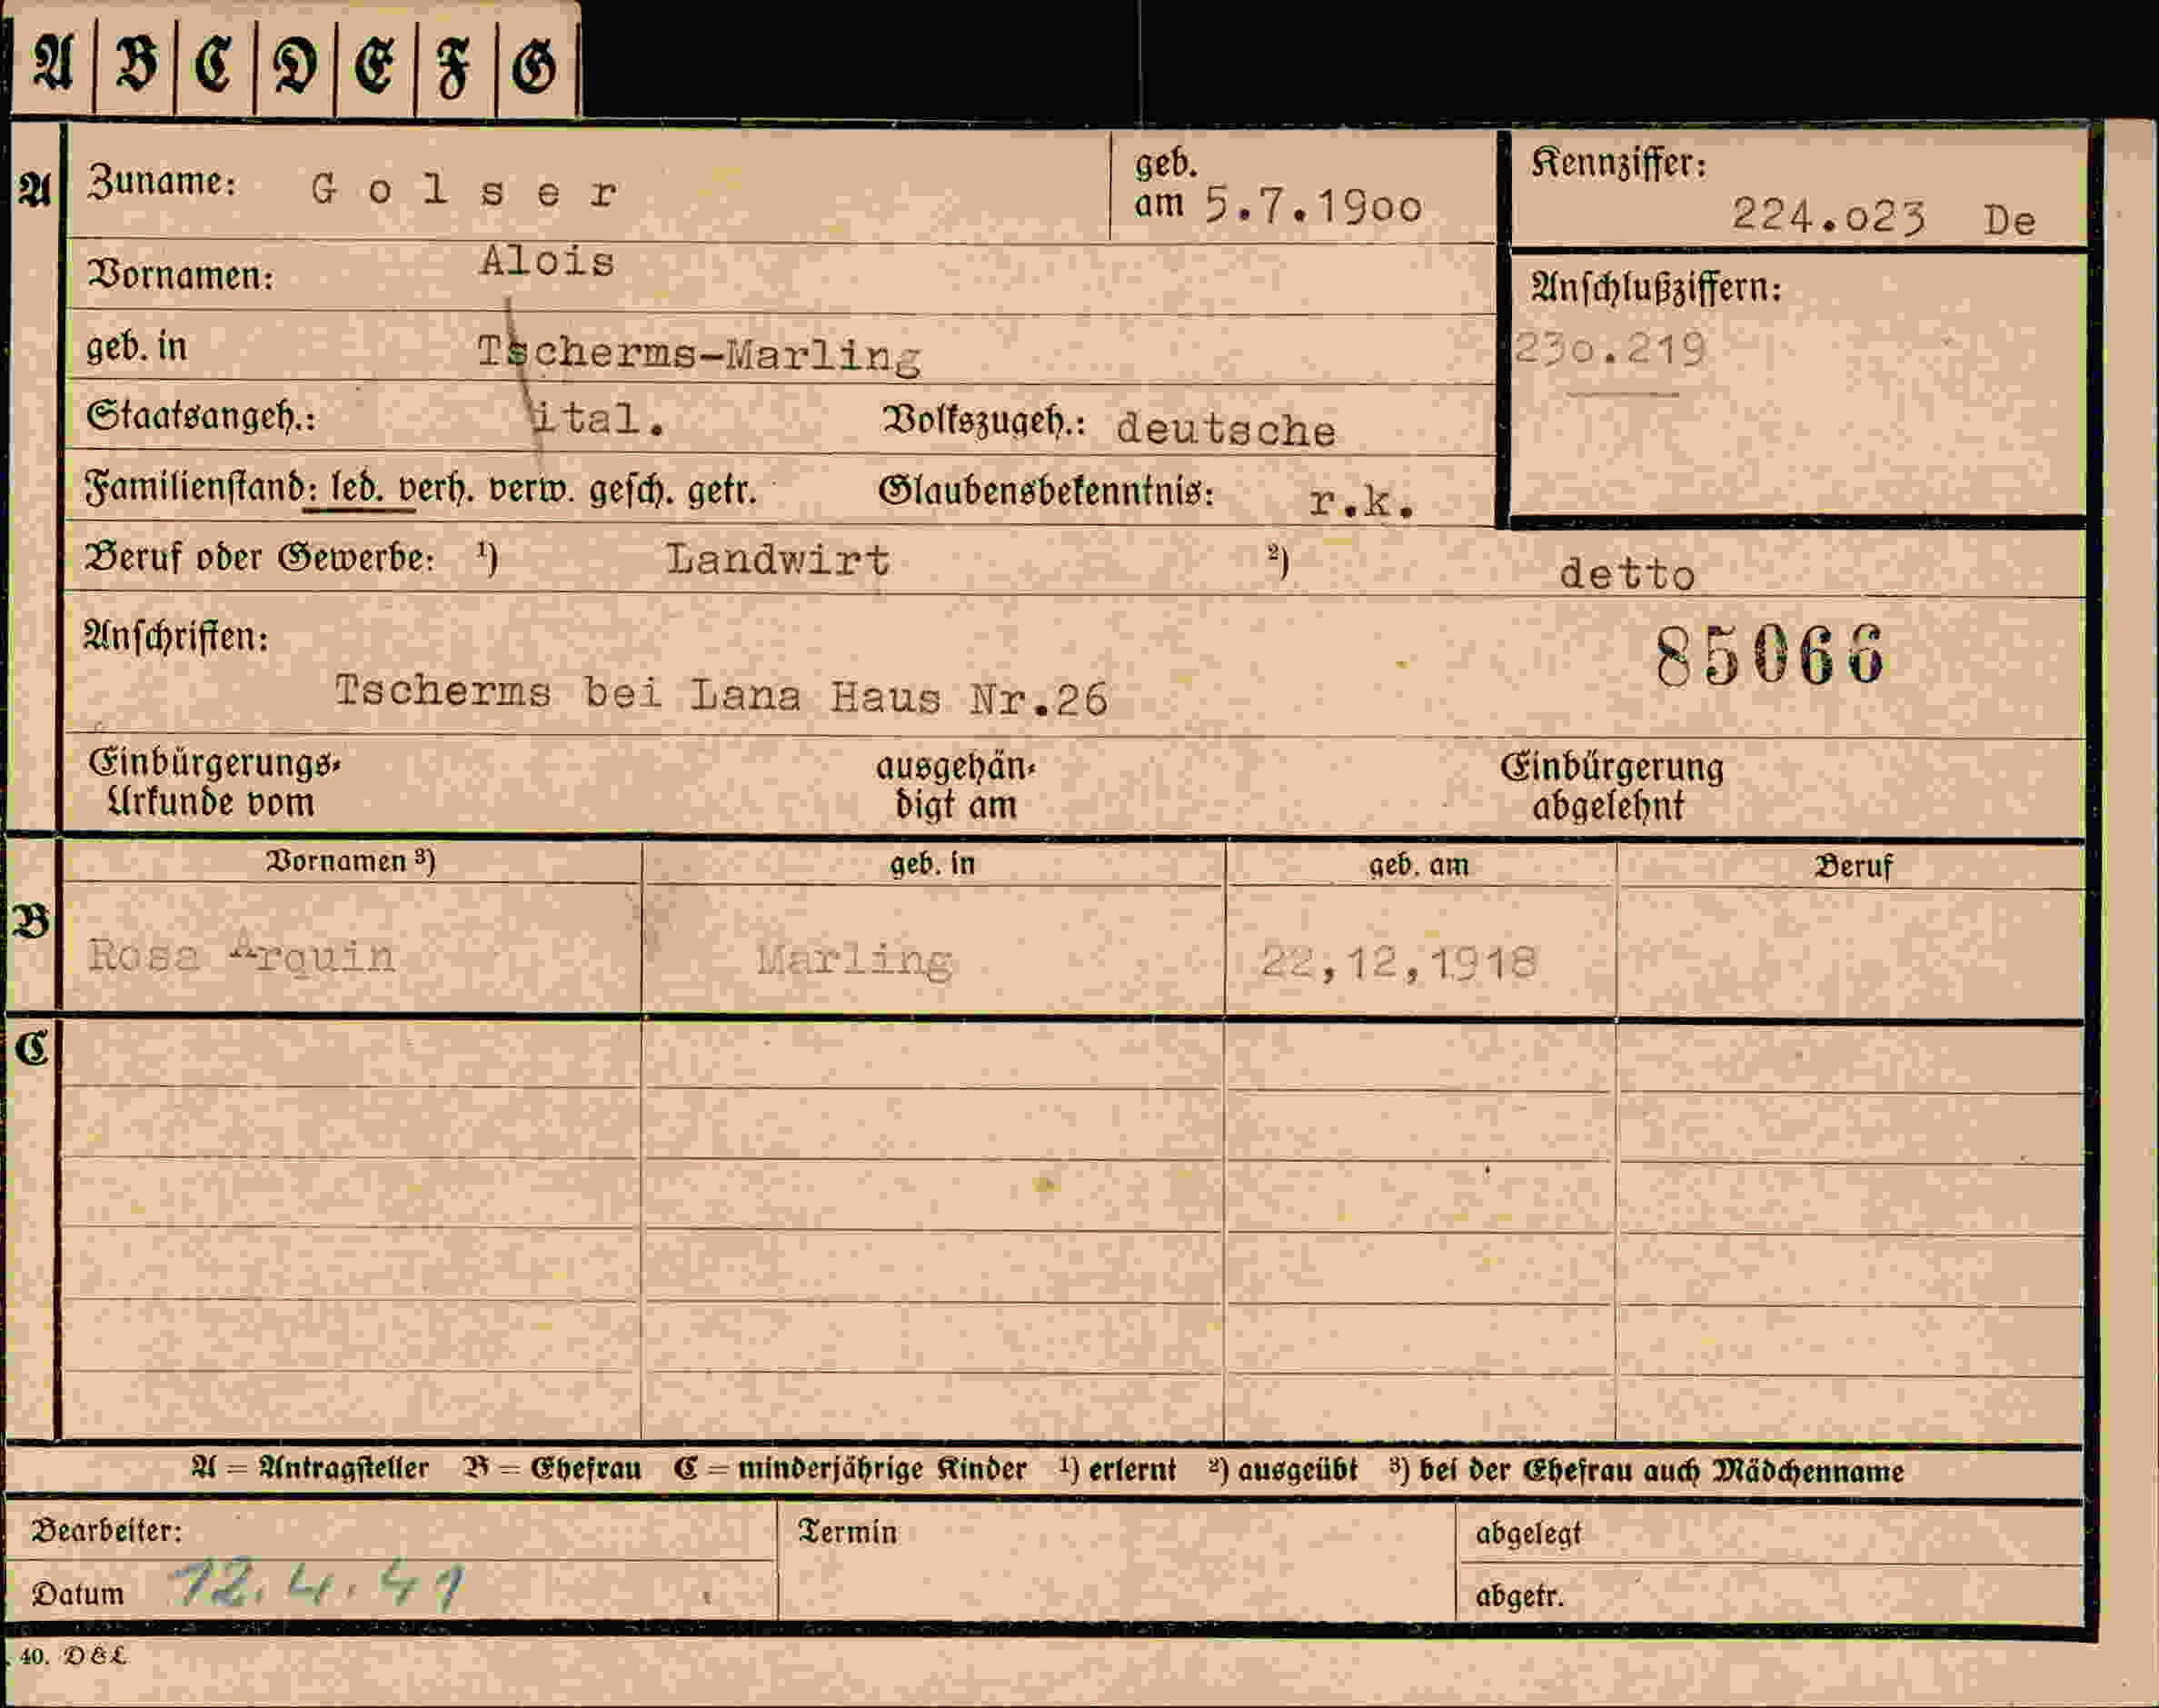 A B C D E F G
A Zuname: Golser geb. am 5.7.19oo Kennziffer: 224.o23 De
Vornamen: Alois Anschlußziffern:
geb. in Tscherms-Marling 23o.219
Staatsangeh.: ital. Volkszugeh.: deutsche
Familienstand: led. verh. verw. gesch. getr. Glaubensbekenntnis: r.k.
Beruf oder Gewerbe: ¹) Landwirt ²) detto
Anschriften: 85066
Tscherms bei Lana Haus Nr.26
Einbürgerungs- ausgehän- Einbürgerung
Urkunde vom digt am abgelehnt
Vornamen ³) geb. in geb. am Beruf
B Rosa Arquin Marling 22,12,1918
C
A = Antragsteller B = Ehefrau C = minderjährige Kinder ¹) erlernt ²) ausgeübt ³) bei der Ehefrau auch Mädchenname
Bearbeiter: Termin abgelegt
Datum 12.4.41 abgetr.
40. D & L